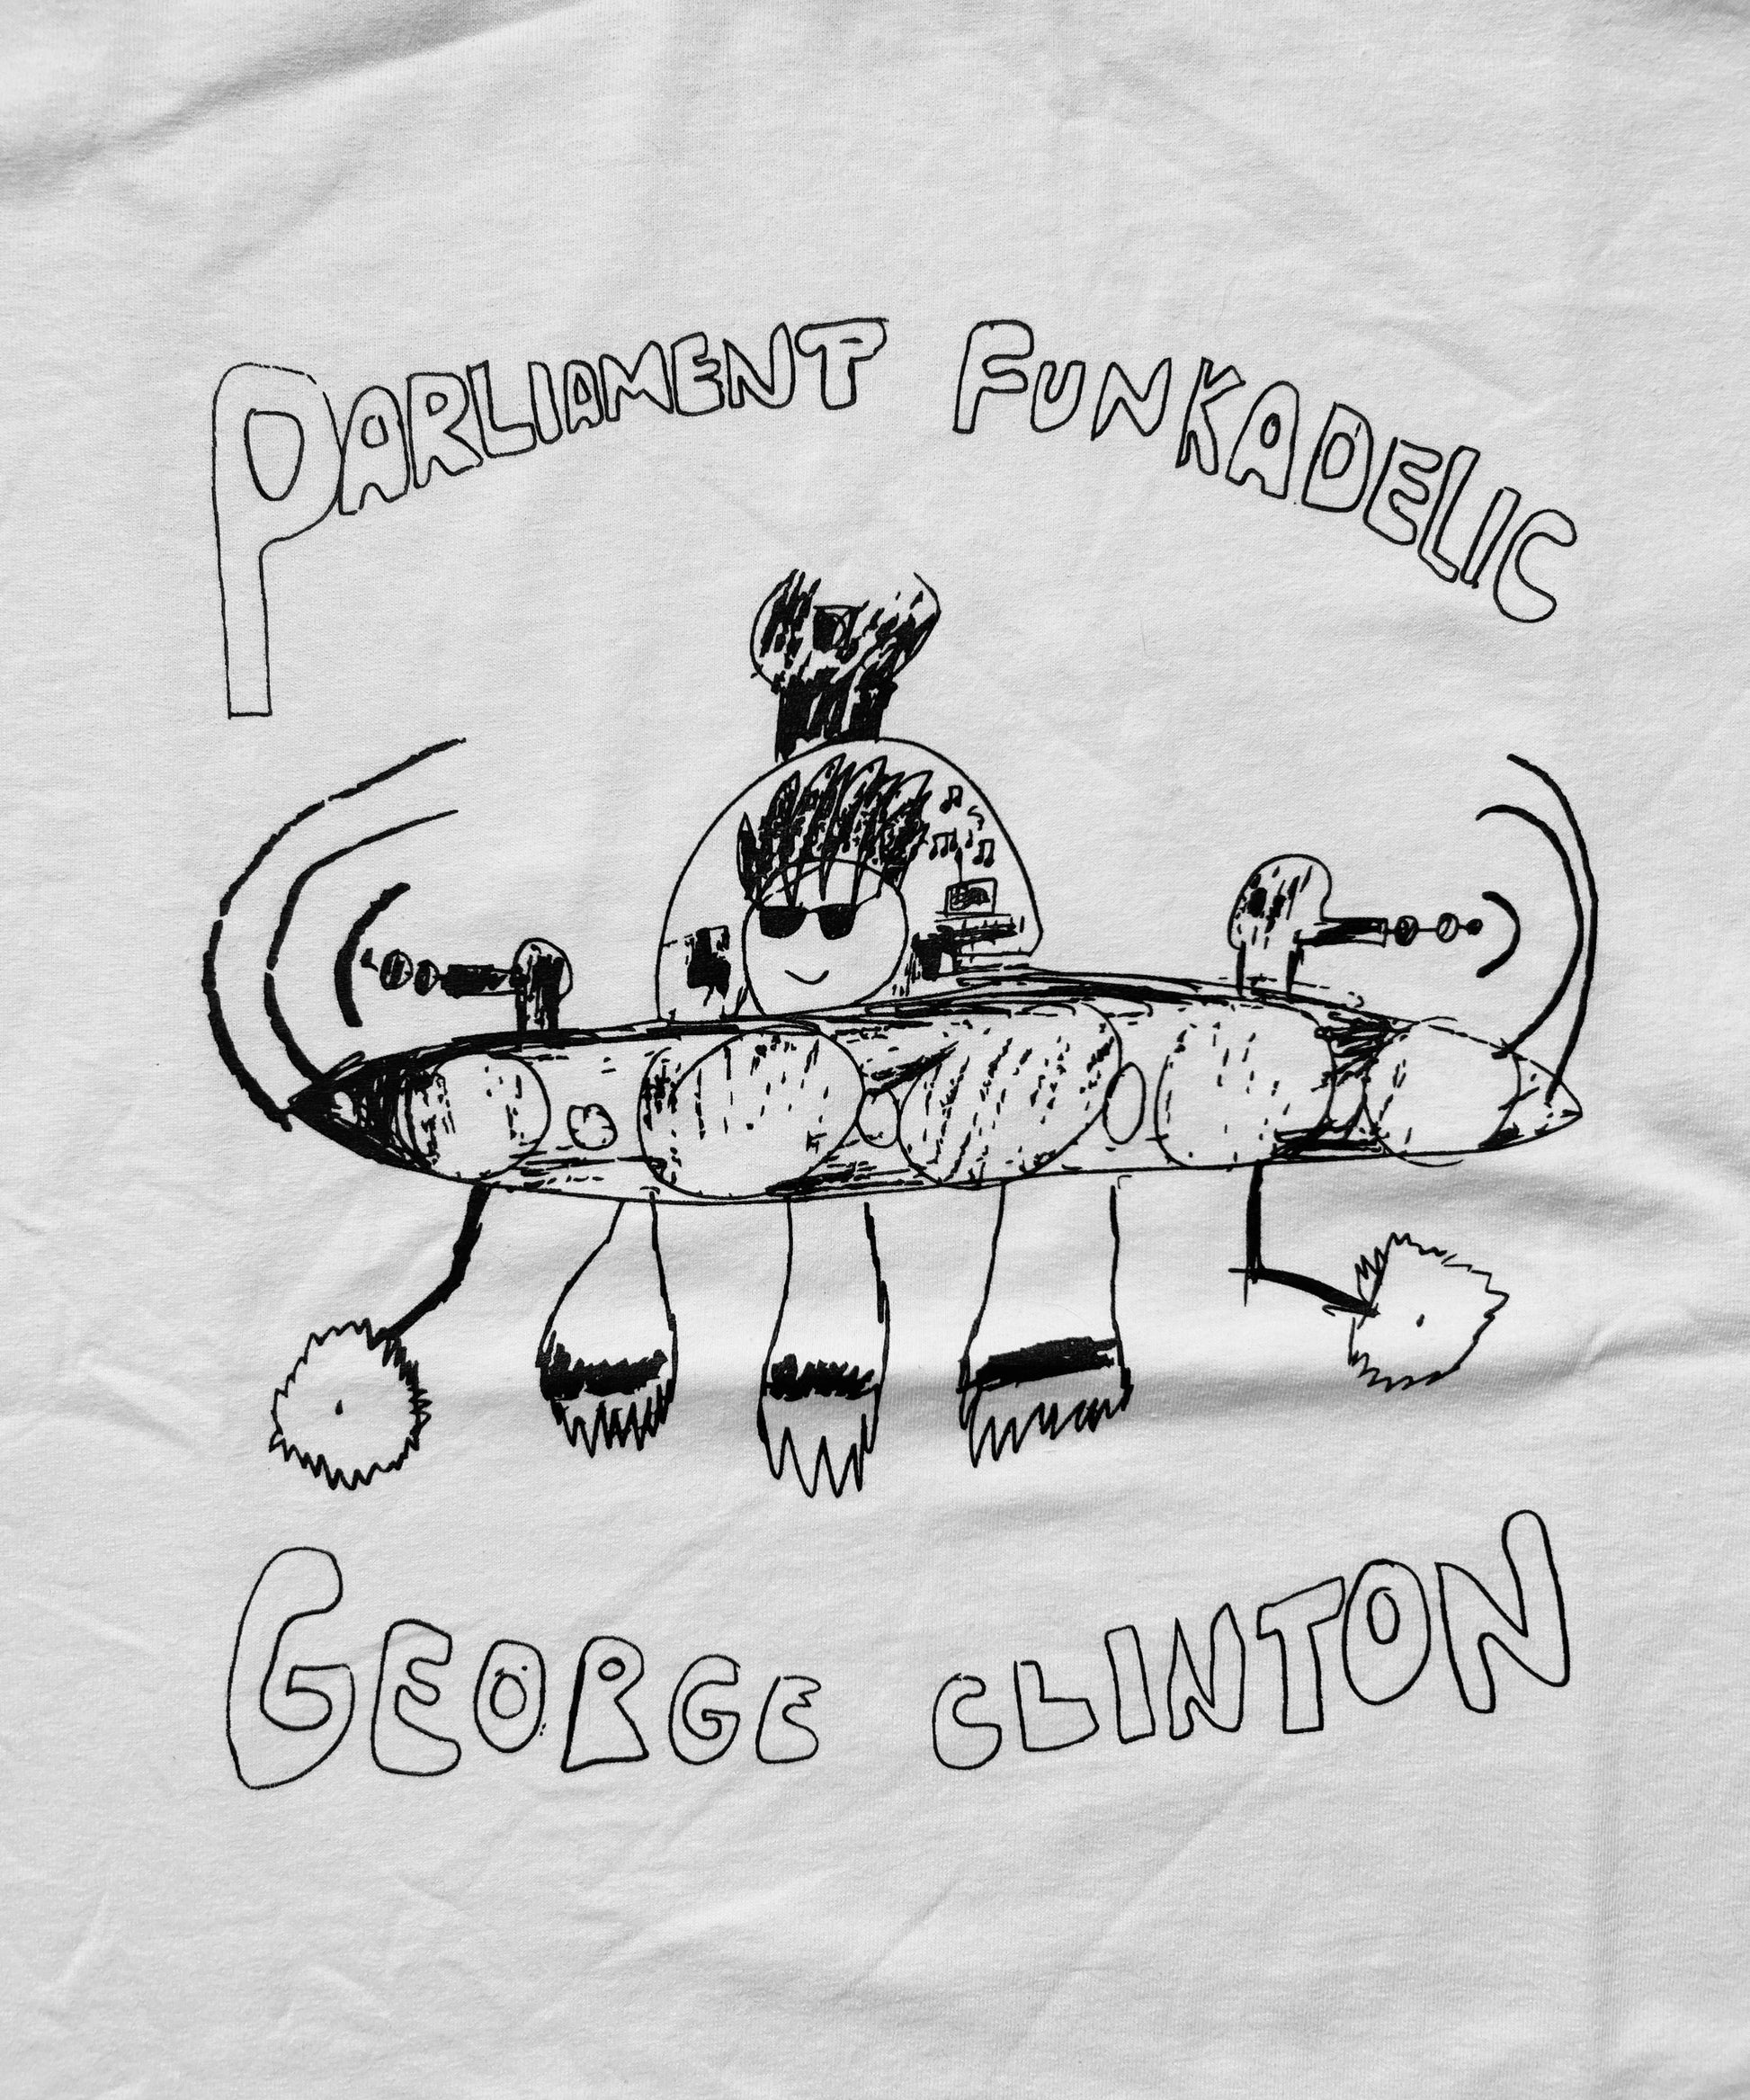 PARLIAMENT FUNKADELIC
GEORGE CLINTON